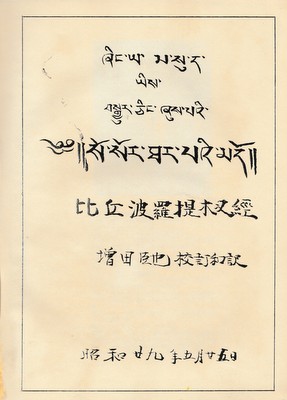 ཞིང་ཡ་ མ་སུ་ད་
ཡིས་
བསྒྱུར་ཅིང་ཞུས་པའི་
༄༅།།སོ་སོར་ཐར་པའི་མདོ།།
比丘波羅提木叉經
増田臣也 校訂和訳
昭和廿九年五月廿五日